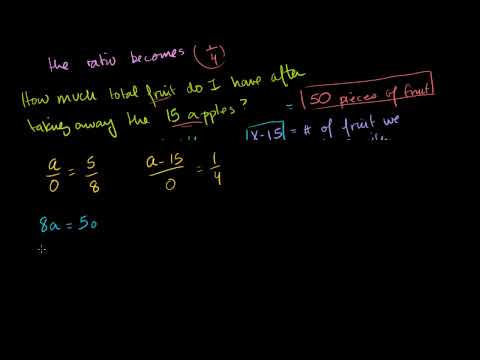 the ratio becomes (1/4)
How much total fruit do I have after
taking away the 15 apples?
= 50 pieces of fruit
x-15 = # of fruit we
a/o = 5/8
a-15/o = 1/4
8a = 5o